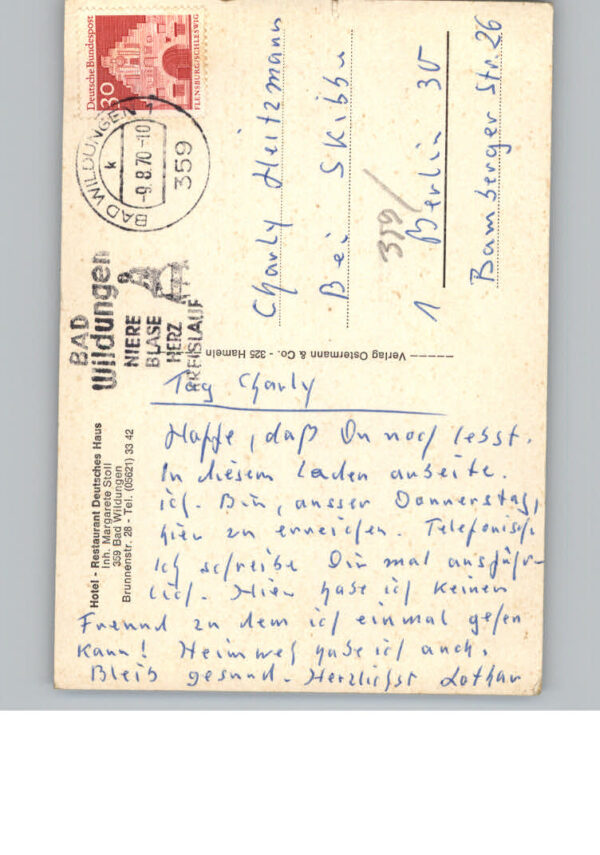 Deutsche Bundespost
30
FLENSBURG/SCHLESWIG
BAD WILDUNGEN 1
k
-9.8.70-10
359
BAD
Wildungen
NIERE
BLASE
HERZ
KREISLAUF
Charly Heitzmann
Bei Skibbe
359/
1 Berlin 30
Bamberger Str. 26
Verlag Ostermann & Co. - 325 Hameln
Hotel - Restaurant Deutsches Haus
Inh. Margarete Stoll
359 Bad Wildungen
Brunnenstr. 28 - Tel. (05621) 33 42
Tag Charly
Hoffe, daß Du noch lebst.
In diesem Laden arbeite
ich. Bin, ausser Donnerstag,
hier zu erreichen. Telefonisch
Ich schreibe Dir mal ausführ-
lich. Hier habe ich keinen
Freund zu dem ich einmal gehen
kann! Heimweh habe ich auch.
Bleib gesund. Herzlichst Lothar